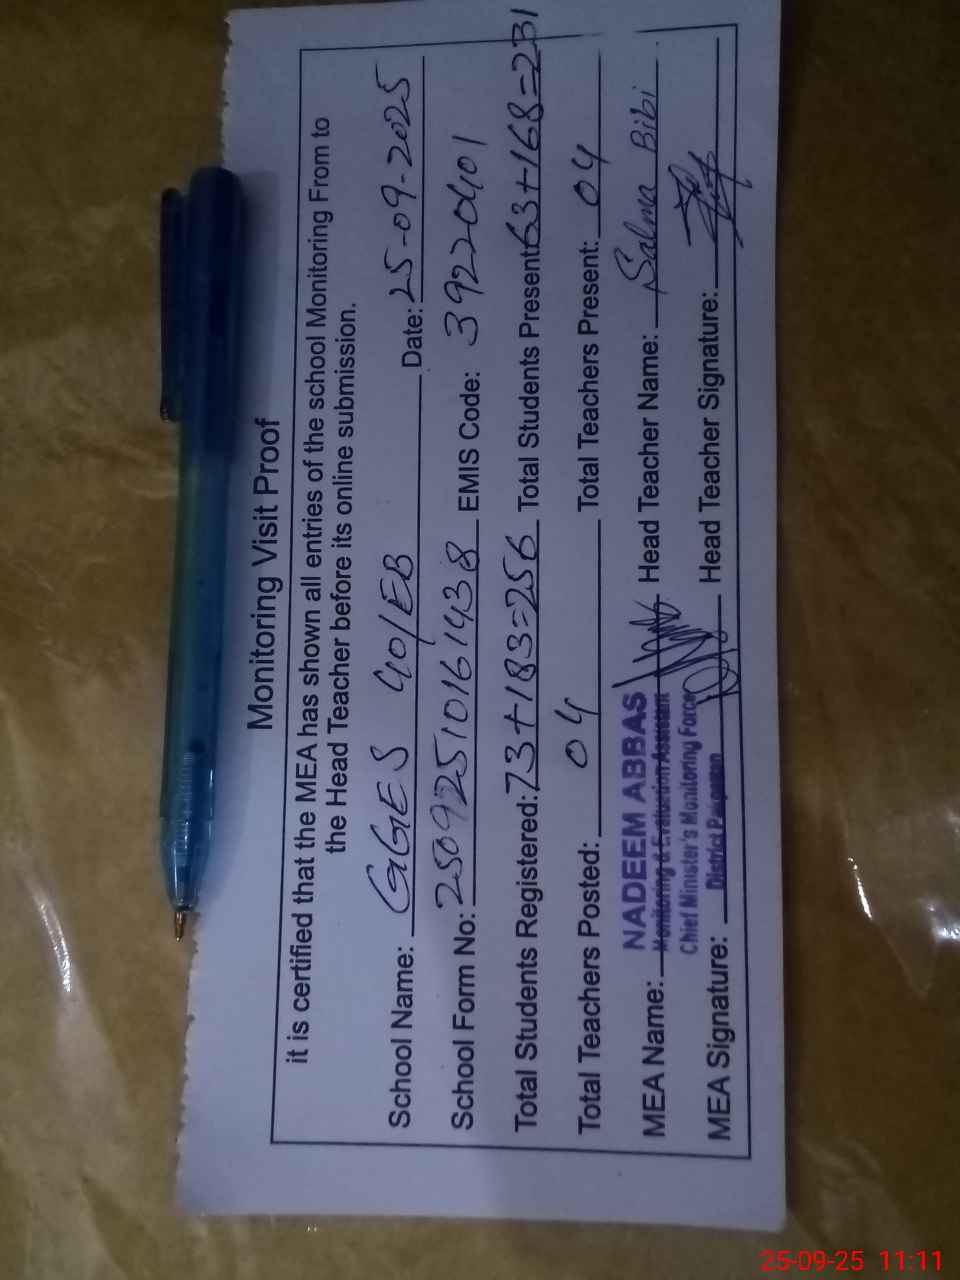 Monitoring Visit Proof
it is certified that the MEA has shown all entries of the school Monitoring From to
the Head Teacher before its online submission.
School Name: GGES 40/EB Date: 25-09-2025
School Form No: 25092510161438 EMIS Code: 39220401
Total Students Registered: 73+183=256 Total Students Present: 63+168=231
Total Teachers Posted: 04 Total Teachers Present: 04
MEA Name: NADEEM ABBAS Head Teacher Name: Salma Bibi
Monitoring & Evaluation Assistant
Chief Minister's Monitoring Force
MEA Signature: District Pakpattan Head Teacher Signature:
25-09-25 11:11